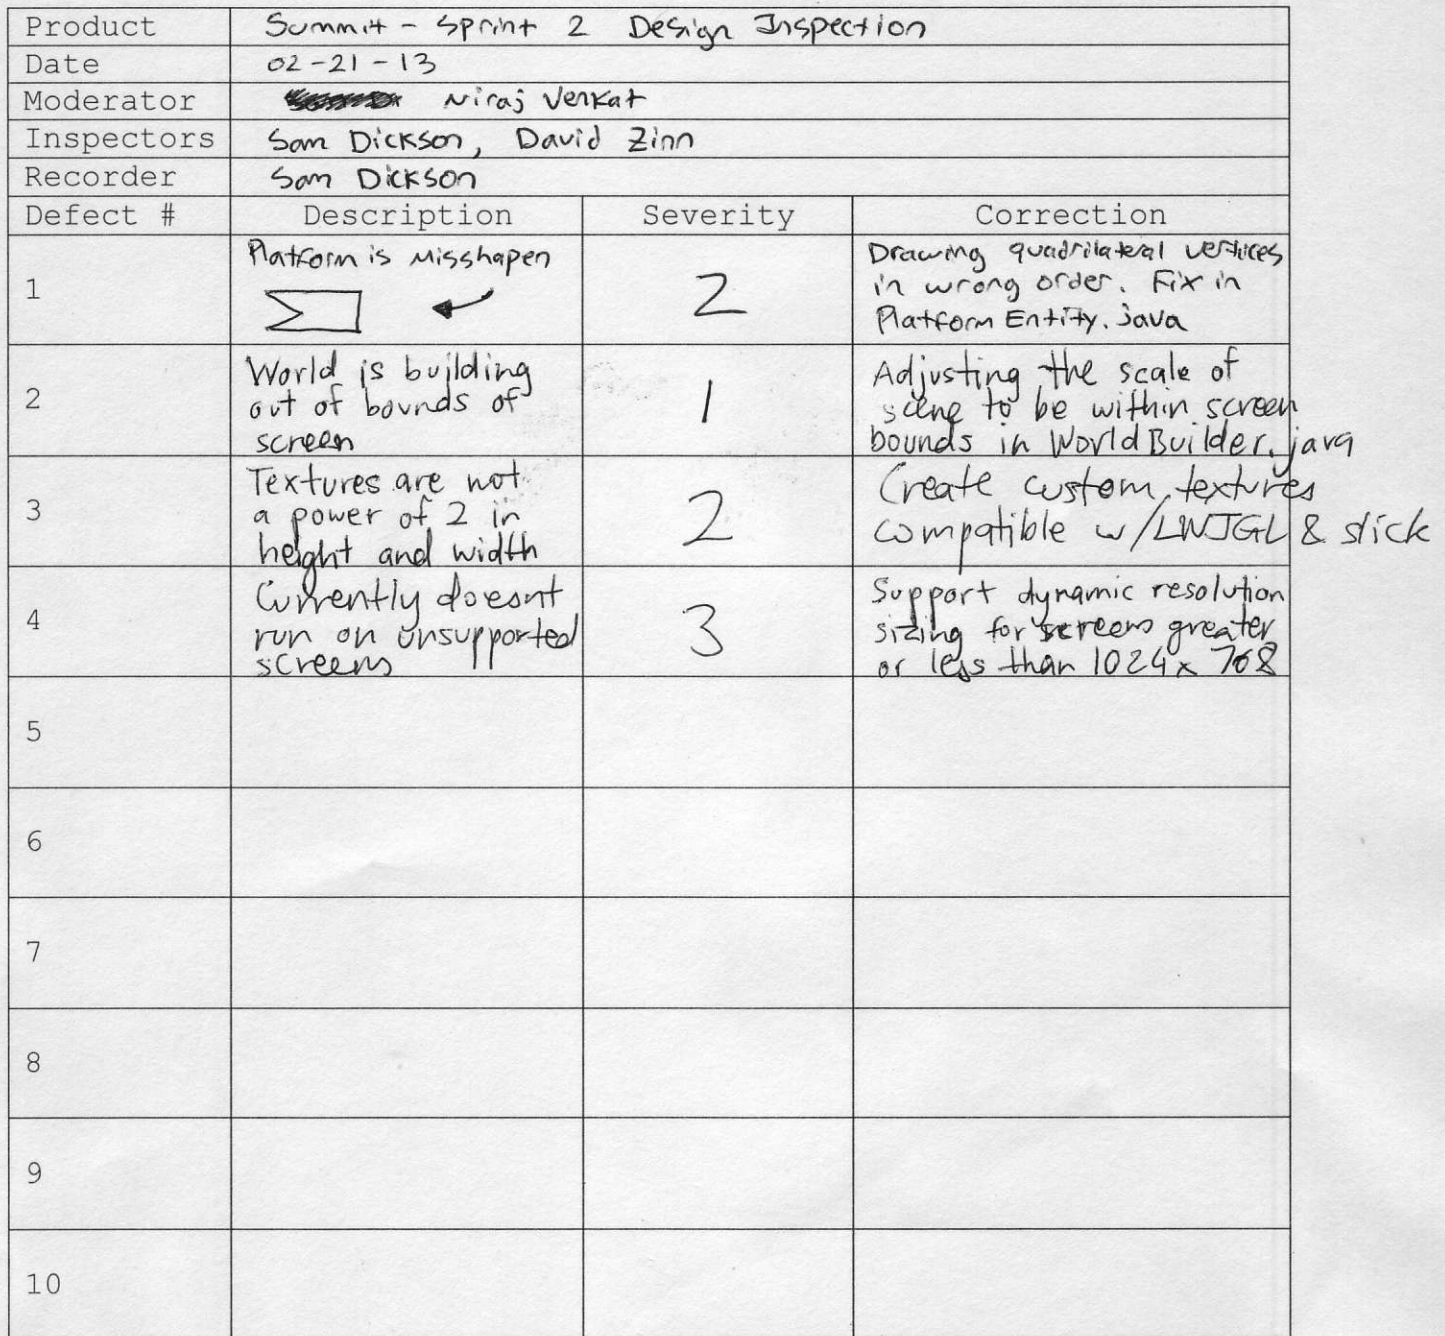 Product Summit - Sprint 2 Design Inspection
Date 02-21-13
Moderator Niraj Venkat
Inspectors Sam Dickson, David Zinn
Recorder Sam Dickson
Defect # Description Severity Correction
1
Platform is Misshapen
2
Drawing quadrilateral vertices
in wrong order. Fix in
Platform Entity.java
2
World is building
out of bounds of
screen
1
Adjusting the scale of
scene to be within screen
bounds in WorldBuilder.java
3
Textures are not
a power of 2 in
height and width
2
Create custom textures
compatible w/LWJGL & slick
4
Currently doesnt
run on unsupported
screens
3
Support dynamic resolution
sizing for screens greater
or less than 1024x768
5
6
7
8
9
10